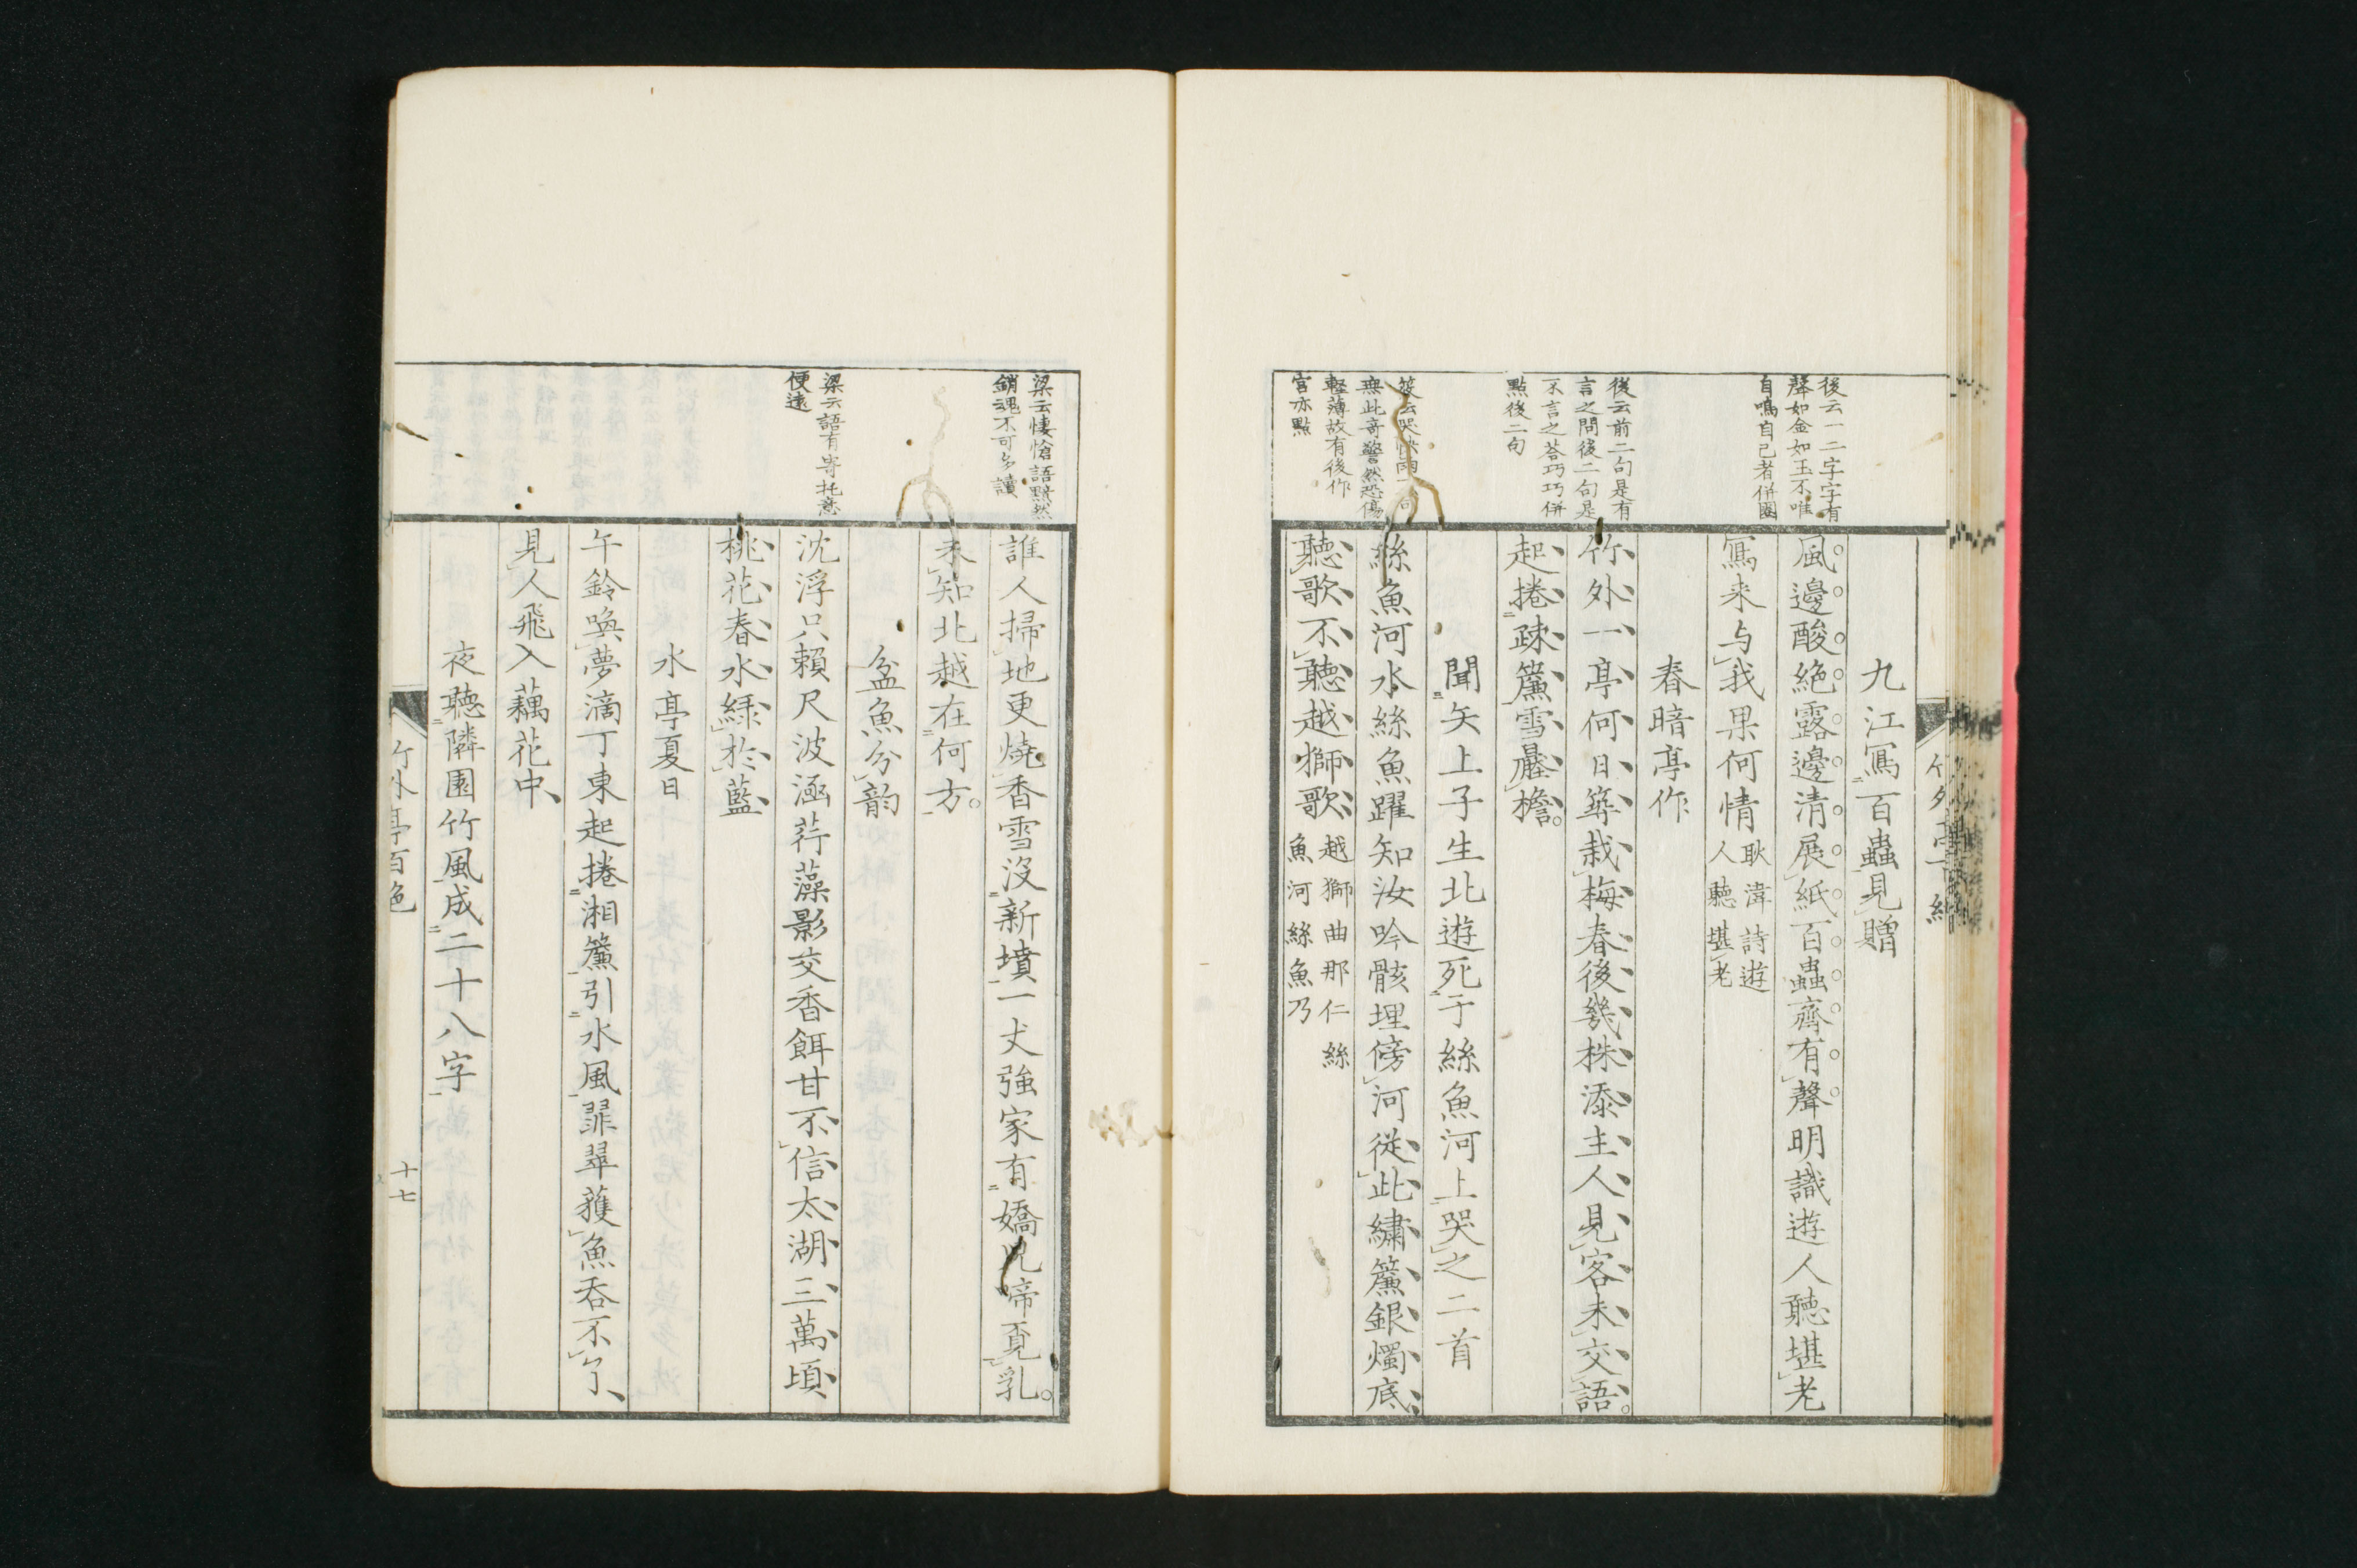 後云一二字字有
聲如金如玉不唯
自鳴自己者併圈
後云前二句是有
言之問後二句是
不言之荅巧巧併
點後二句
無此奇警然恐傷
輕薄故有後作
宮亦點
九江寫百蟲見贈
風邊酸絶露邊清展紙百蟲齊有聲明識遊人聽堪老
寫来与我果何情
耿湋詩遊
人聽堪老
春暗亭作
竹外一亭何日築栽梅春後幾株添主人見客未交語
起捲疎簾雪壓檐
聞矢上子生北遊死于絲魚河上哭之二首
絲魚河水絲魚躍知汝吟骸埋傍河從此繡簾銀燭底
聽歌不聽越獅歌
越獅曲那仁絲
魚河絲魚乃
竹外亭百絶
梁云悽愴語黯然
銷魂不可多讀
梁云語有寄托意
便遠
誰人掃地更燒香雪沒新墳一丈強家有嬌兒啼覓乳
未知北越在何方
盆魚分韵
沈浮只賴尺波涵荇藻影交香餌甘不信太湖三萬頃
桃花春水緑於藍
水亭夏日
午鈴喚夢滴丁東起捲湘簾引水風翡翠獲魚吞不了
見人飛入藕花中
夜聽隣園竹風成二十八字
竹外亭百絶
十七